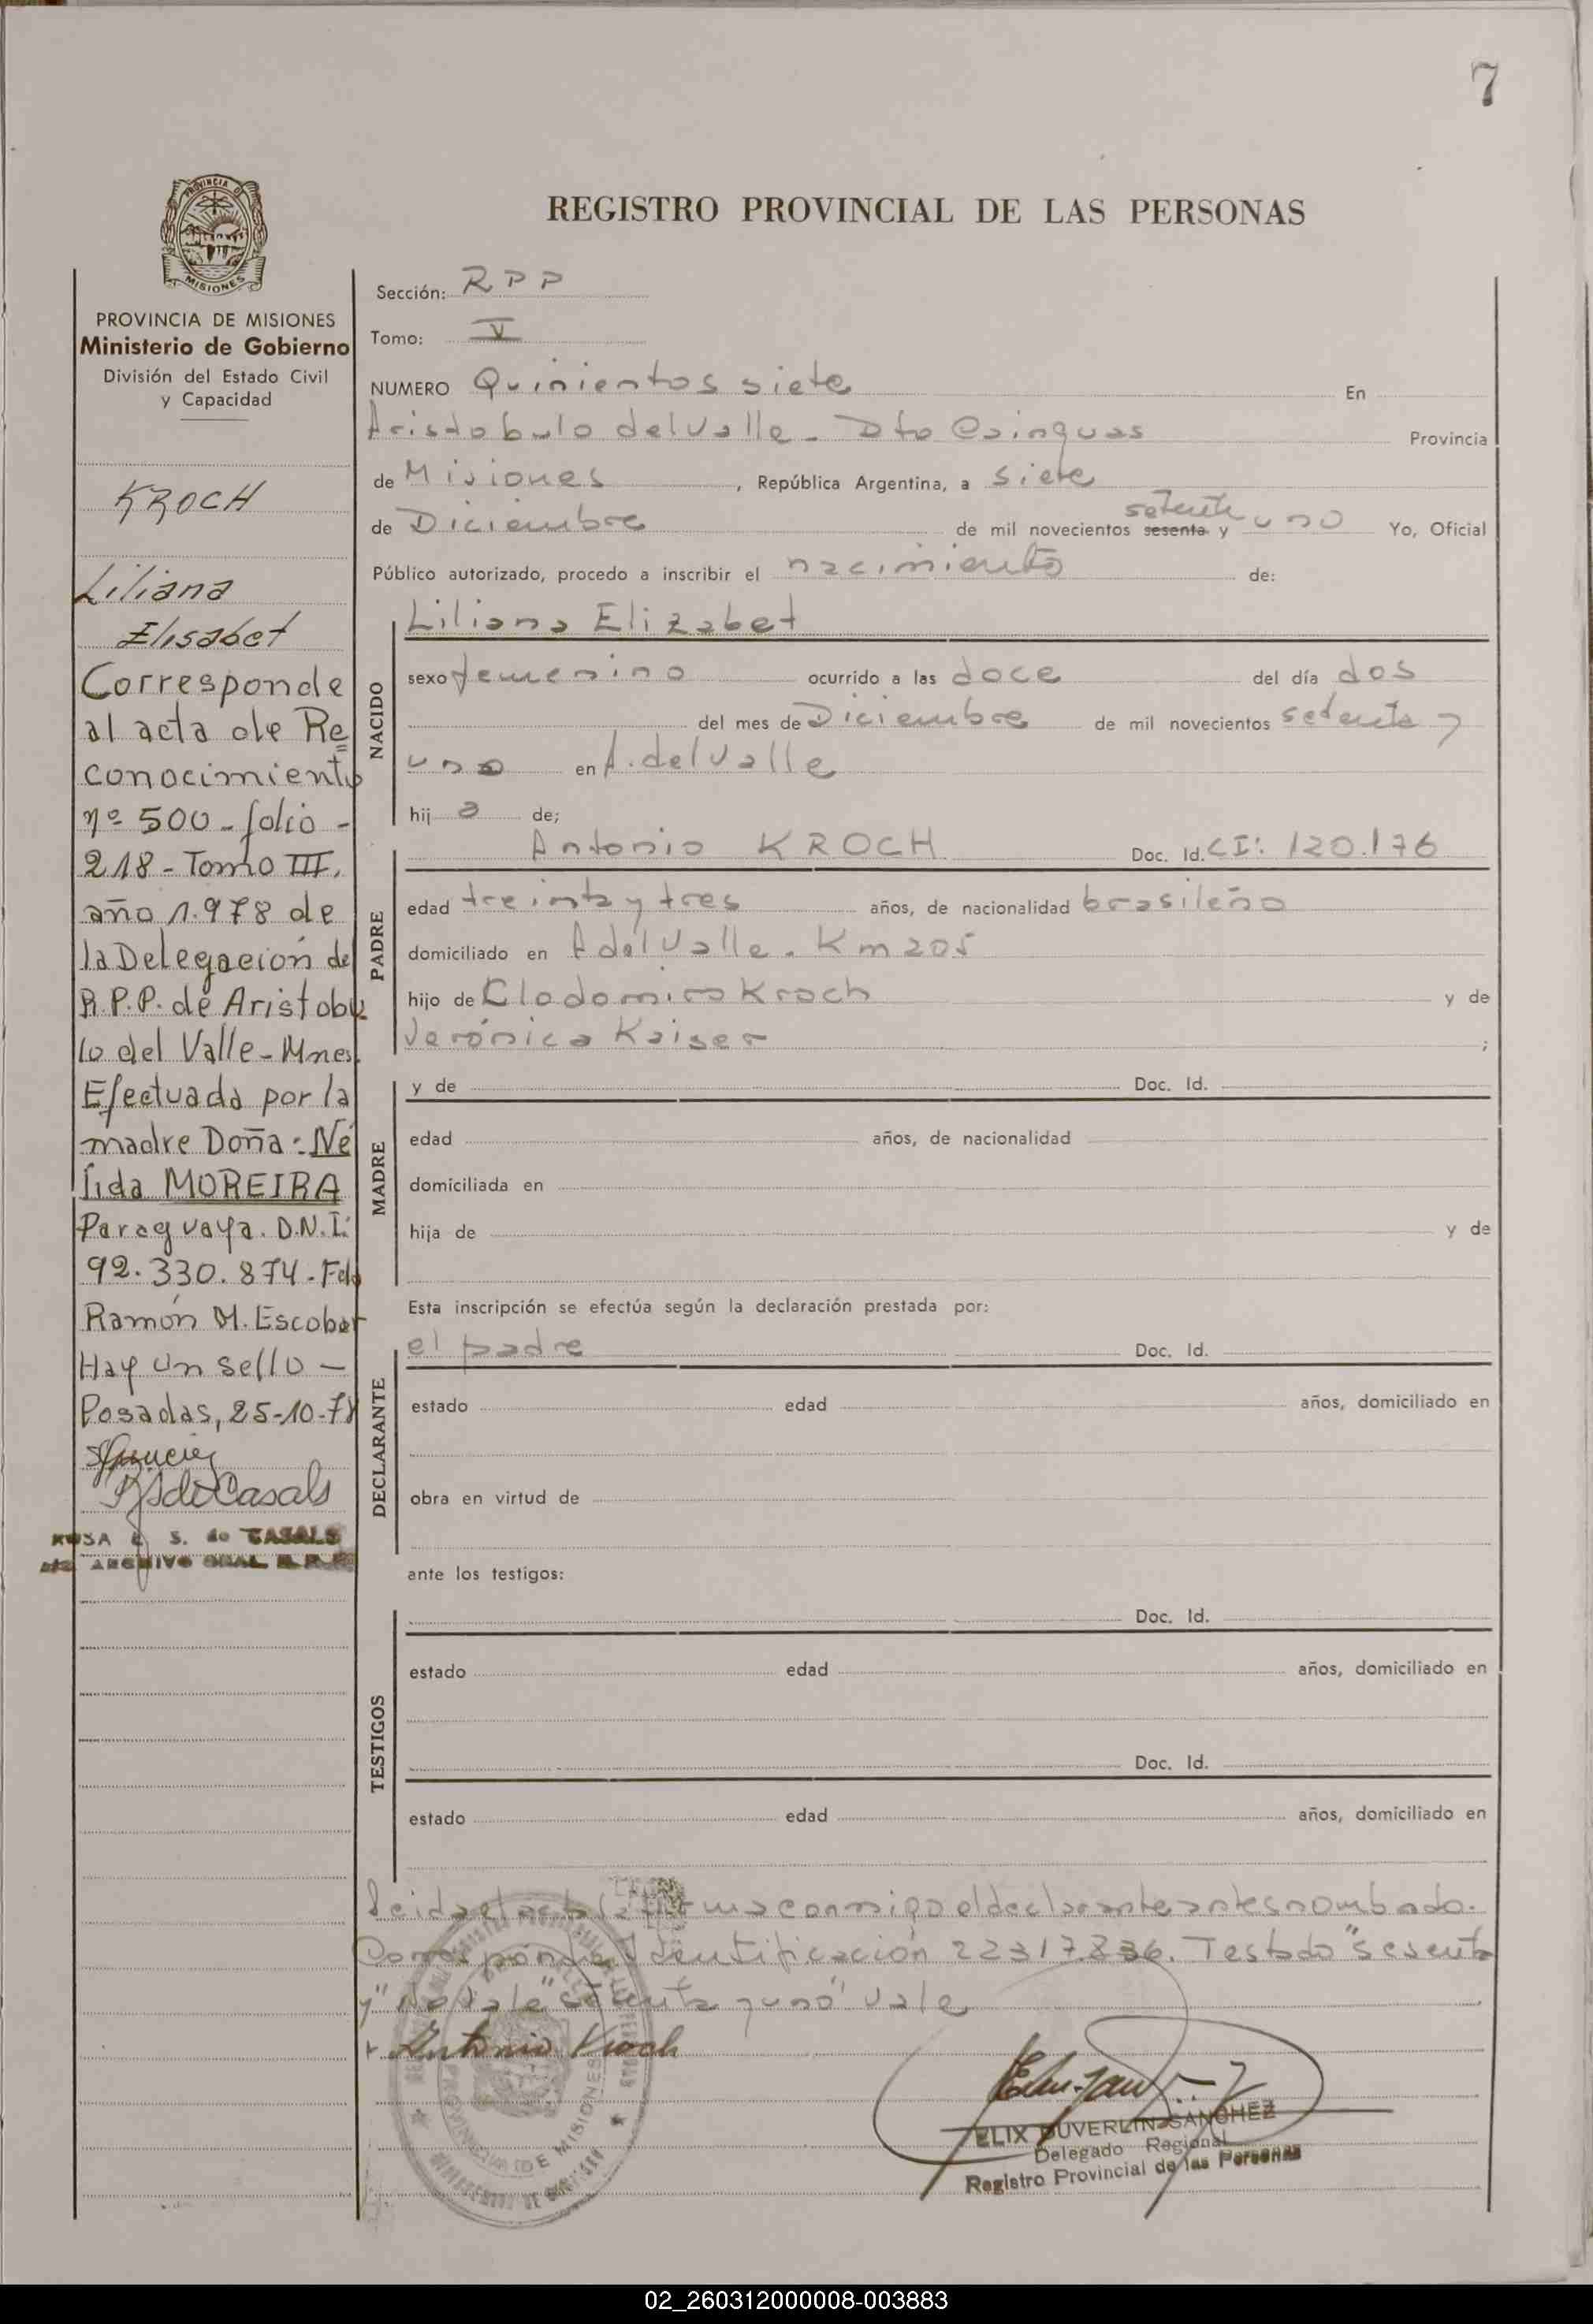 7
REGISTRO PROVINCIAL DE LAS PERSONAS
PROVINCIA DE
MISIONES
PROVINCIA DE MISIONES
Ministerio de Gobierno
División del Estado Civil
y Capacidad
KROCH
Liliana
Elisabet
Corresponde
al acta de Re
conocimiento
nº 500 - folio -
218 - Tomo III,
año 1.978 de
la Delegación de
R.P.P. de Aristobu
lo del Valle - Mnes.
Efectuada por la
madre Doña: Né
lida MOREIRA
Paraguaya. D.N.I.
92.330.874 - Fdo
Ramón M. Escobar
Hay un sello -
Posadas, 25-10-78
de Casals
ROSA S. de CASALS
ARCHIVO GRAL R.P.P.
Sección: RPP
Tomo: V
NUMERO Quinientos siete En
Aristobulo del Valle - Dto Cainguas Provincia
de Misiones, República Argentina, a siete
de Diciembre de mil novecientos sesenta y setenta uno Yo, Oficial
Público autorizado, procedo a inscribir el nacimiento de:
NACIDO
Liliana Elizabet
sexo femenino ocurrido a las doce del día dos
del mes de Diciembre de mil novecientos setenta y
uno en A. del Valle
hija de;
PADRE
Antonio KROCH Doc. Id. CI: 120.176
edad treinta y tres años, de nacionalidad brasileño
domiciliado en A del Valle. Km 205
hijo de Clodomiro Kroch y de
Verónica Kaiser ;
MADRE
y de Doc. Id.
edad años, de nacionalidad
domiciliada en
hija de y de
Esta inscripción se efectúa según la declaración prestada por:
DECLARANTE
el padre Doc. Id.
estado edad años, domiciliado en
obra en virtud de
ante los testigos:
TESTIGOS
Doc. Id.
estado edad años, domiciliado en
Doc. Id.
estado edad años, domiciliado en
Leida el acta la firma conmigo el declarante antes nombado.
Corresponde Identificación 22317836. Testado "sesenta
y" No vale "setenta y uno" vale
Antonio Kroch
PROVINCIA DE MISIONES
ELIX DUVERLIN SANCHEZ
Delegado Regional
Registro Provincial de las Personas
02_260312000008-003883